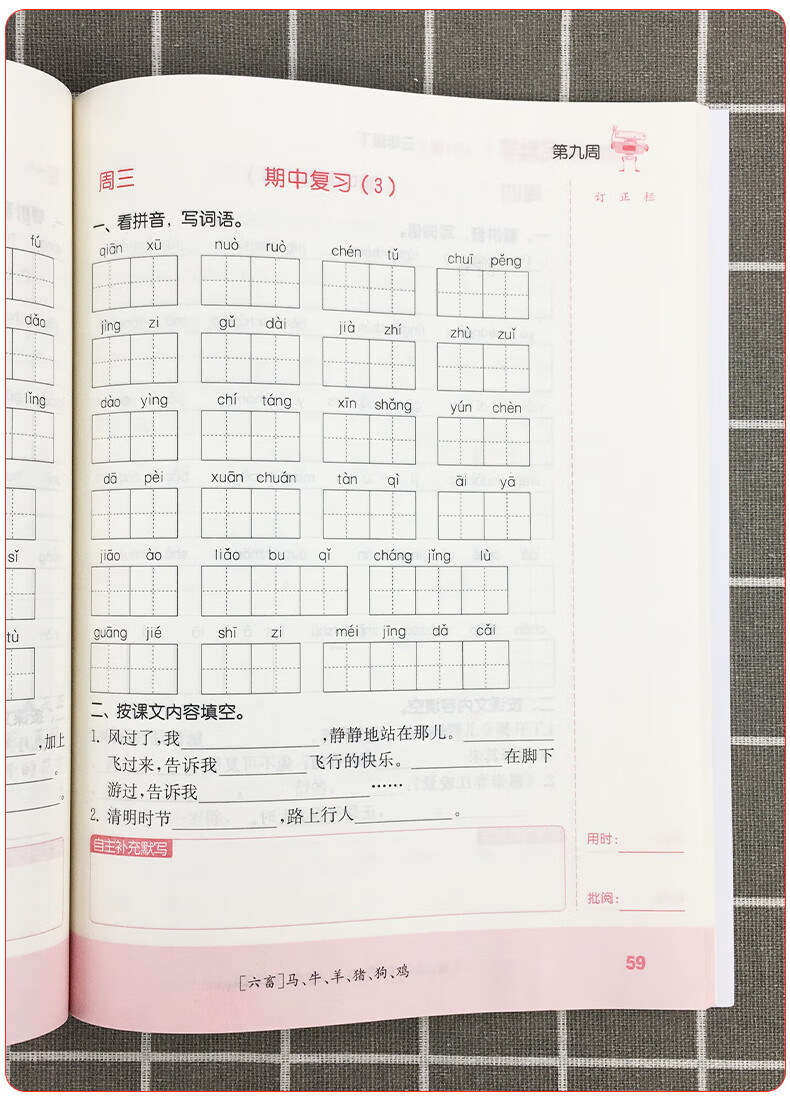 第九周
周三 期中复习(3)
订正栏
一、看拼音,写词语。
qiān xū nuò ruò chén tǔ chuī pěng
jìng zi gǔ dài jià zhí zhù zuǐ
dào yìng chí táng xīn shǎng yún chèn
dā pèi xuān chuán tàn qì āi yā
jiāo ào liǎo bu qǐ cháng jǐng lù
guāng jié shī zi méi jīng dǎ cǎi
二、按课文内容填空。
1. 风过了,我______,静静地站在那儿。______
飞过来,告诉我______飞行的快乐。______在脚下
游过,告诉我______……
2. 清明时节______,路上行人______。
自主补充默写
用时:
批阅:
[六畜]马、牛、羊、猪、狗、鸡
59
fú
dǎo
lǐng
sǐ
tù
,加上
。
。